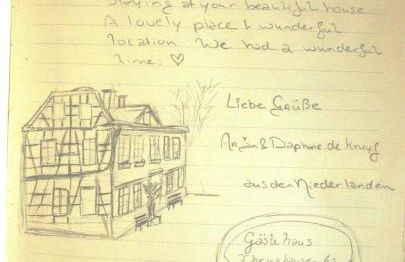 staying at your beautiful house
A lovely place & wunderful
location. We had a wunderful
time. ♡
Liebe Grüße
Arjan & Daphne de Kruyf
aus den Niederlanden
Gästehaus